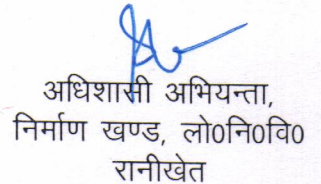 अधिशासी अभियन्ता,
निर्माण खण्ड, लो0नि0वि0
रानीखेत